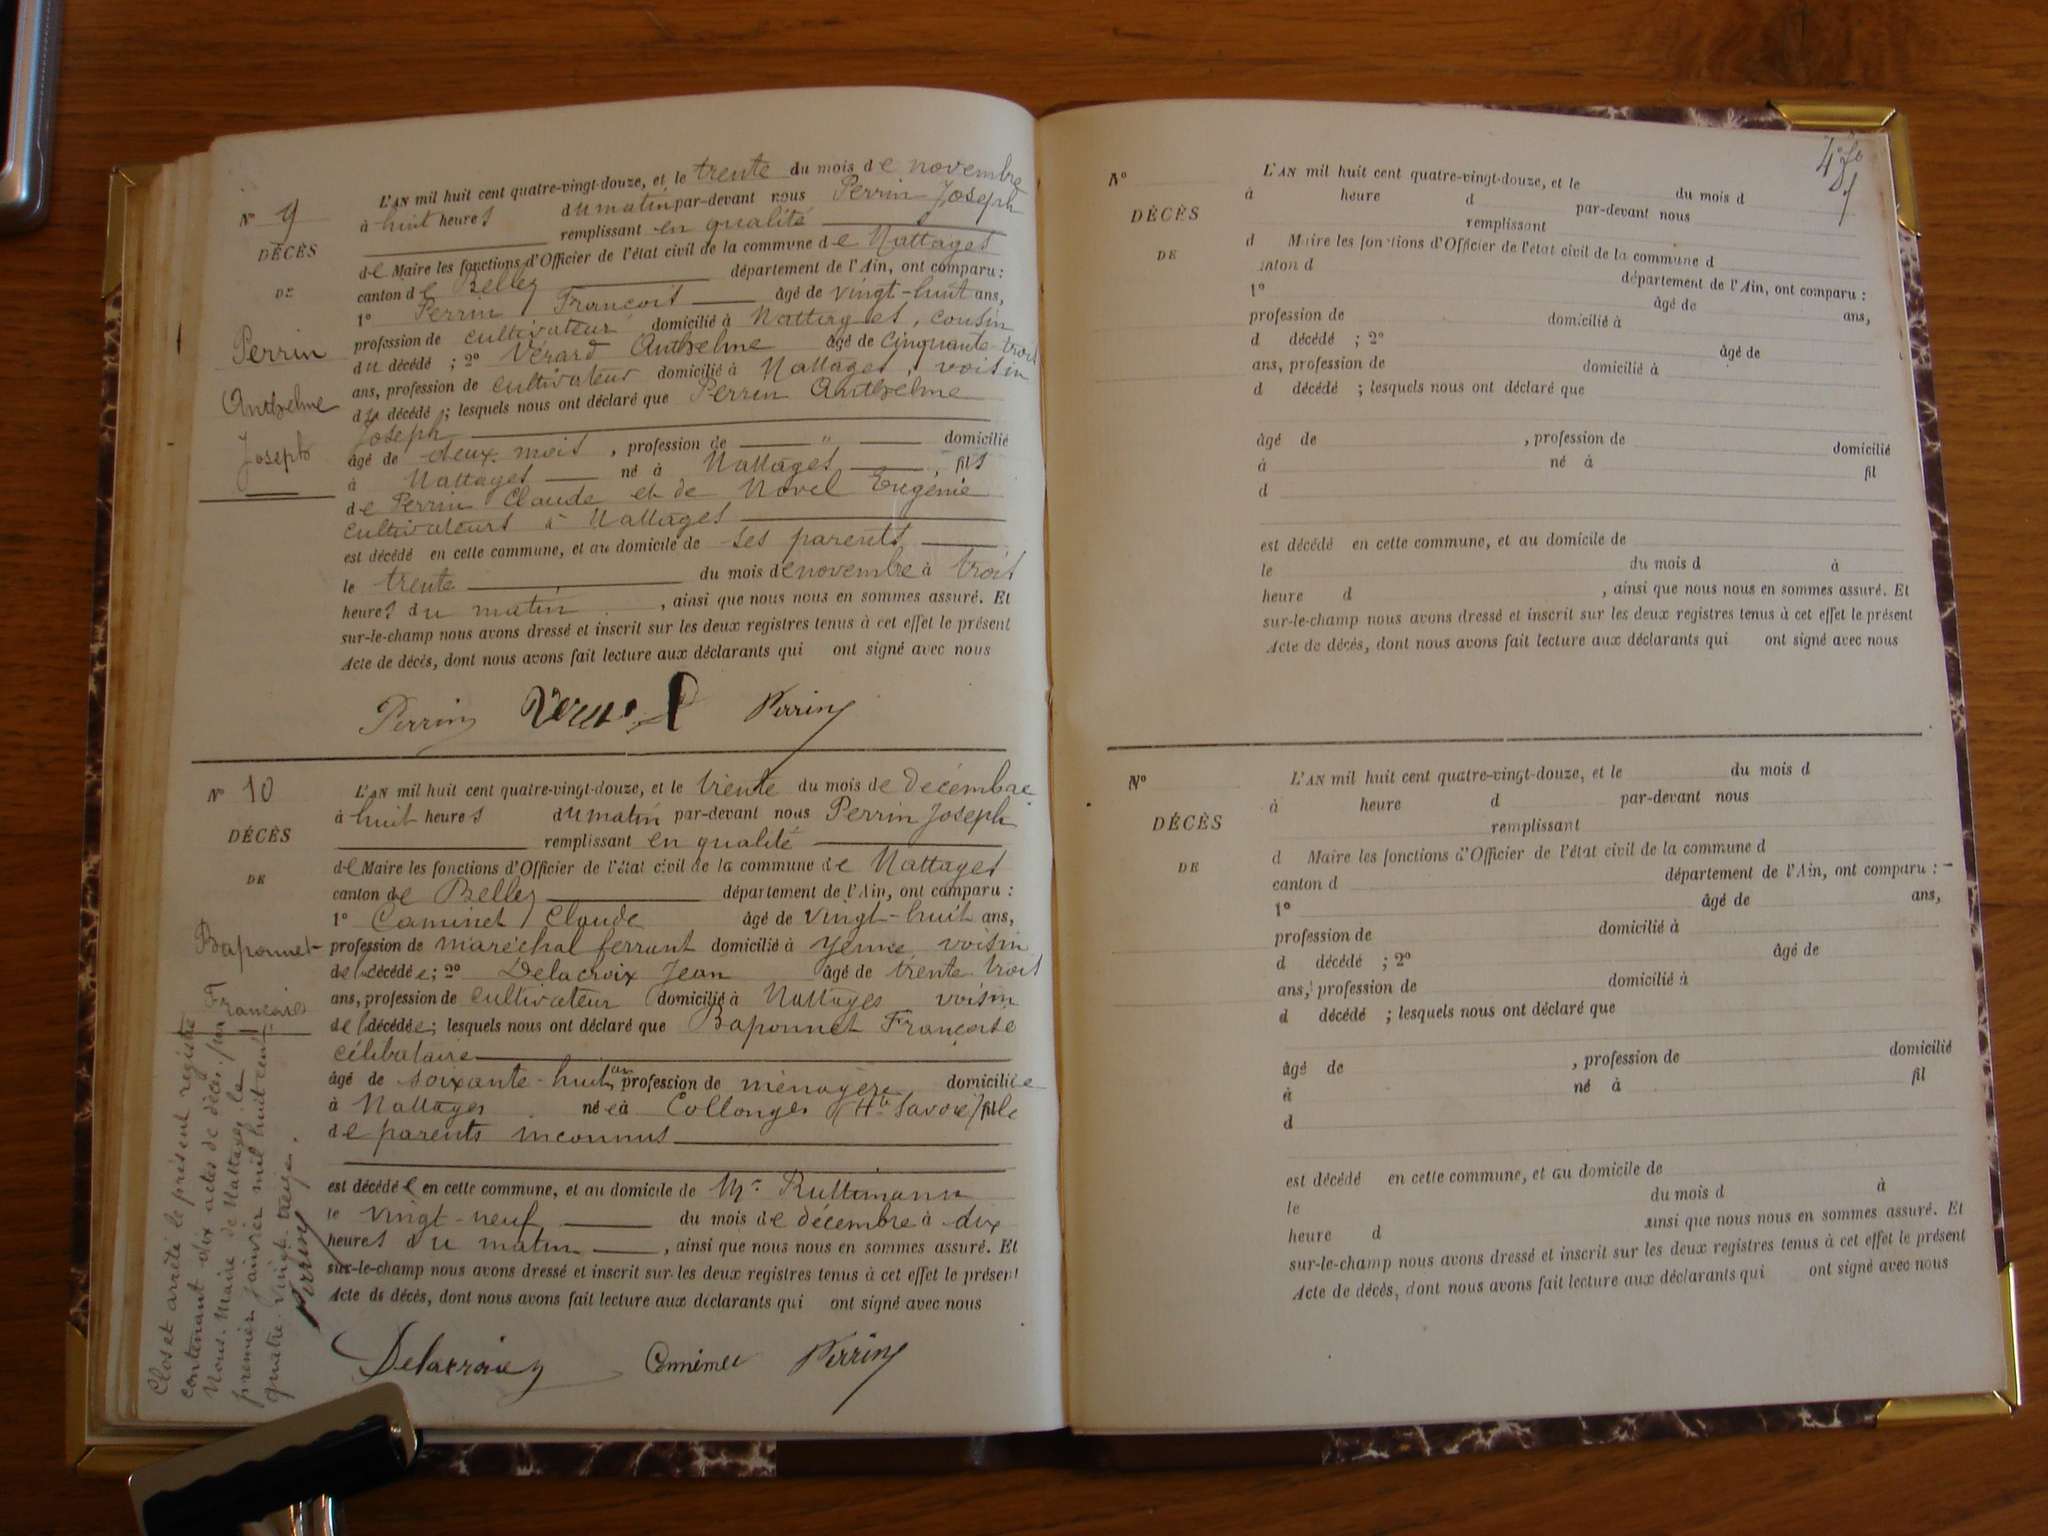 N° 9
DÉCÈS
DE
Perrin
Anthelme
Joseph
L'AN mil huit cent quatre-vingt-douze, et le trente du mois de novembre
à huit heures du matin par-devant nous Perrin Joseph
remplissant en qualité
de Maire les fonctions d'Officier de l'état civil de la commune de Nattages
canton de Belley département de l'Ain, ont comparu :
1° Perrin François âgé de vingt-huit ans,
profession de cultivateur domicilié à Nattages, cousin
du décédé ; 2° Vérard Anthelme âgé de cinquante-trois
ans, profession de cultivateur domicilié à Nattages, voisin
du décédé ; lesquels nous ont déclaré que Perrin Anthelme
Joseph
âgé de deux mois, profession de " domicilié
à Nattages né à Nattages, fils
de Perrin Claude et de Novel Eugénie
cultivateurs à Nattages
est décédé en cette commune, et au domicile de ses parents
le trente du mois de novembre à trois
heures du matin, ainsi que nous nous en sommes assuré. Et
sur-le-champ nous avons dressé et inscrit sur les deux registres tenus à cet effet le présent
Acte de décès, dont nous avons fait lecture aux déclarants qui ont signé avec nous
Perrin Perrin
N° 10
DÉCÈS
DE
Baponnet
Françoise
L'AN mil huit cent quatre-vingt-douze, et le trente du mois de Décembre
à huit heures du matin par-devant nous Perrin Joseph
remplissant en qualité
de Maire les fonctions d'Officier de l'état civil de la commune de Nattages
canton de Belley département de l'Ain, ont comparu :
1° Caminet Claude âgé de vingt-huit ans,
profession de maréchal ferrant domicilié à Yenne, voisin
de la décédée ; 2° Delacroix Jean âgé de trente trois
ans, profession de cultivateur domicilié à Nattages voisin
de la décédée ; lesquels nous ont déclaré que Baponnet Françoise
célibataire
âgé de soixante-huit ans profession de ménagère domiciliée
à Nattages née à Collonges (Hte Savoie) fille
de parents inconnus
est décédée en cette commune, et au domicile de Mr Ruttimann
le vingt-neuf du mois de décembre à dix
heures du matin, ainsi que nous nous en sommes assuré. Et
sur-le-champ nous avons dressé et inscrit sur les deux registres tenus à cet effet le présent
Acte de décès, dont nous avons fait lecture aux déclarants qui ont signé avec nous
Delacroix Perrin
Clos et arrêté le présent registre
contenant dix actes de décès, par
Nous, Maire de Nattages, le
premier janvier mil huit cent
quatre-vingt-treize.
Perrin
N°
DÉCÈS
DE
L'AN mil huit cent quatre-vingt-douze, et le du mois d
à heure d par-devant nous
remplissant
d Maire les fonctions d'Officier de l'état civil de la commune d
canton d département de l'Ain, ont comparu :
1° âgé de ans,
profession de domicilié à
d décédé ; 2° âgé de
ans, profession de domicilié à
d décédé ; lesquels nous ont déclaré que
âgé de , profession de domicilié
à né à fil
d
est décédé en cette commune, et au domicile de
le du mois d à
heure d , ainsi que nous nous en sommes assuré. Et
sur-le-champ nous avons dressé et inscrit sur les deux registres tenus à cet effet le présent
Acte de décès, dont nous avons fait lecture aux déclarants qui ont signé avec nous
N°
DÉCÈS
DE
L'AN mil huit cent quatre-vingt-douze, et le du mois d
à heure d par-devant nous
remplissant
d Maire les fonctions d'Officier de l'état civil de la commune d
canton d département de l'Ain, ont comparu :
1° âgé de ans,
profession de domicilié à
d décédé ; 2° âgé de
ans, profession de domicilié à
d décédé ; lesquels nous ont déclaré que
âgé de , profession de domicilié
à né à fil
d
est décédé en cette commune, et au domicile de
le du mois d à
heure d ainsi que nous nous en sommes assuré. Et
sur-le-champ nous avons dressé et inscrit sur les deux registres tenus à cet effet le présent
Acte de décès, dont nous avons fait lecture aux déclarants qui ont signé avec nous